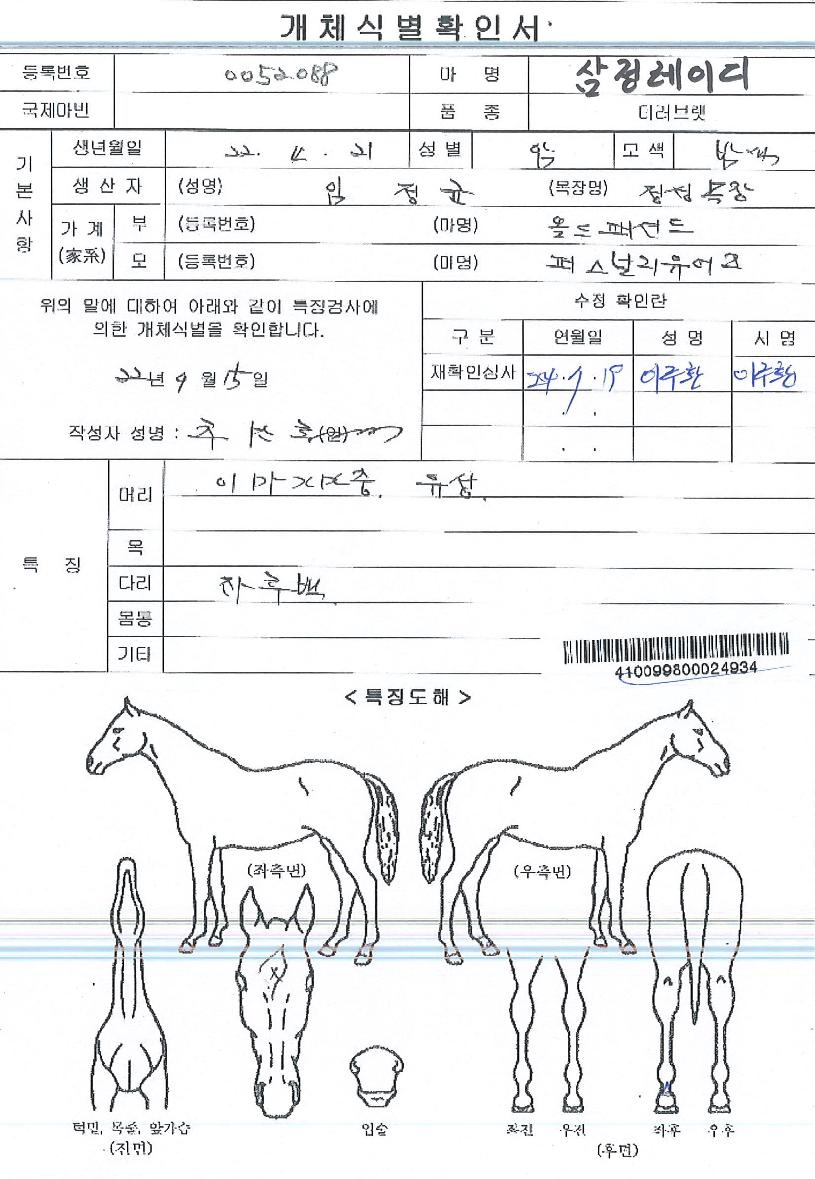 개체식별확인서
등록번호 0052088 마 명 삼정레이디
국제마번 품 종 더러브렛
기본사항
생년월일 22. 4. 21 성별 암 모색 밤색
생 산 자 (성명) 임 정 균 (목장명) 정성목장
가계(家系) 부 (등록번호) (마명) 올드패션드
모 (등록번호) (마명) 퍼스널리유어즈
위의 말에 대하여 아래와 같이 특징검사에
의한 개체식별을 확인합니다.
22년 9월 15일
작성사 성명 : (인)
수정 확인란
구 분 연월일 성 명 서 명
재확인심사 24. 1. 19 이주환 이주환
. .
. .
특 징
머리 유성.
목
다리 좌후백.
몸통
기타
410099800024934
< 특징도해 >
(좌측면) (우측면)
턱밑, 목줄, 앞가슴
(전면)
입술
좌전 우전 좌후 우후
(후면)